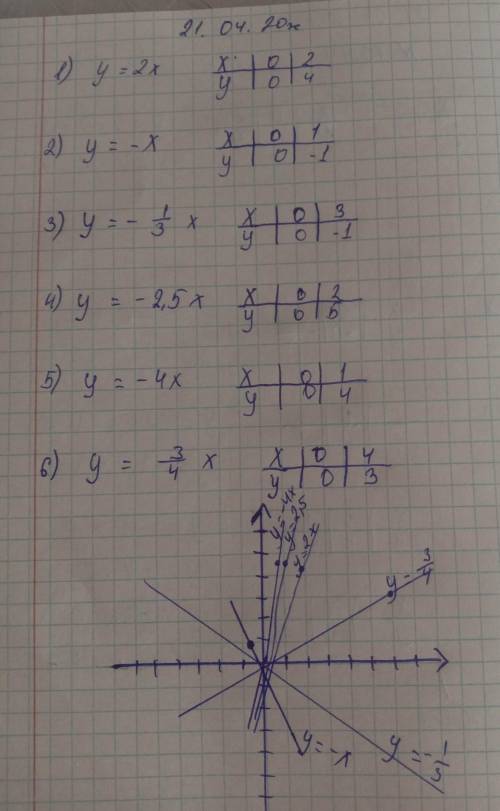 21. 04. 20
1) y = 2x x 0 2
y 0 4
2) y = -x x 0 1
y 0 -1
3) y = - 1/3 x x 0 3
y 0 -1
4) y = -2,5x x 0 2
y 0 5
5) y = -4x x 0 1
y 0 4
6) y = 3/4 x x 0 4
y 0 3
y=-4x
y=2,5
y=2x
y=3/4
y=-x
y=-1/3